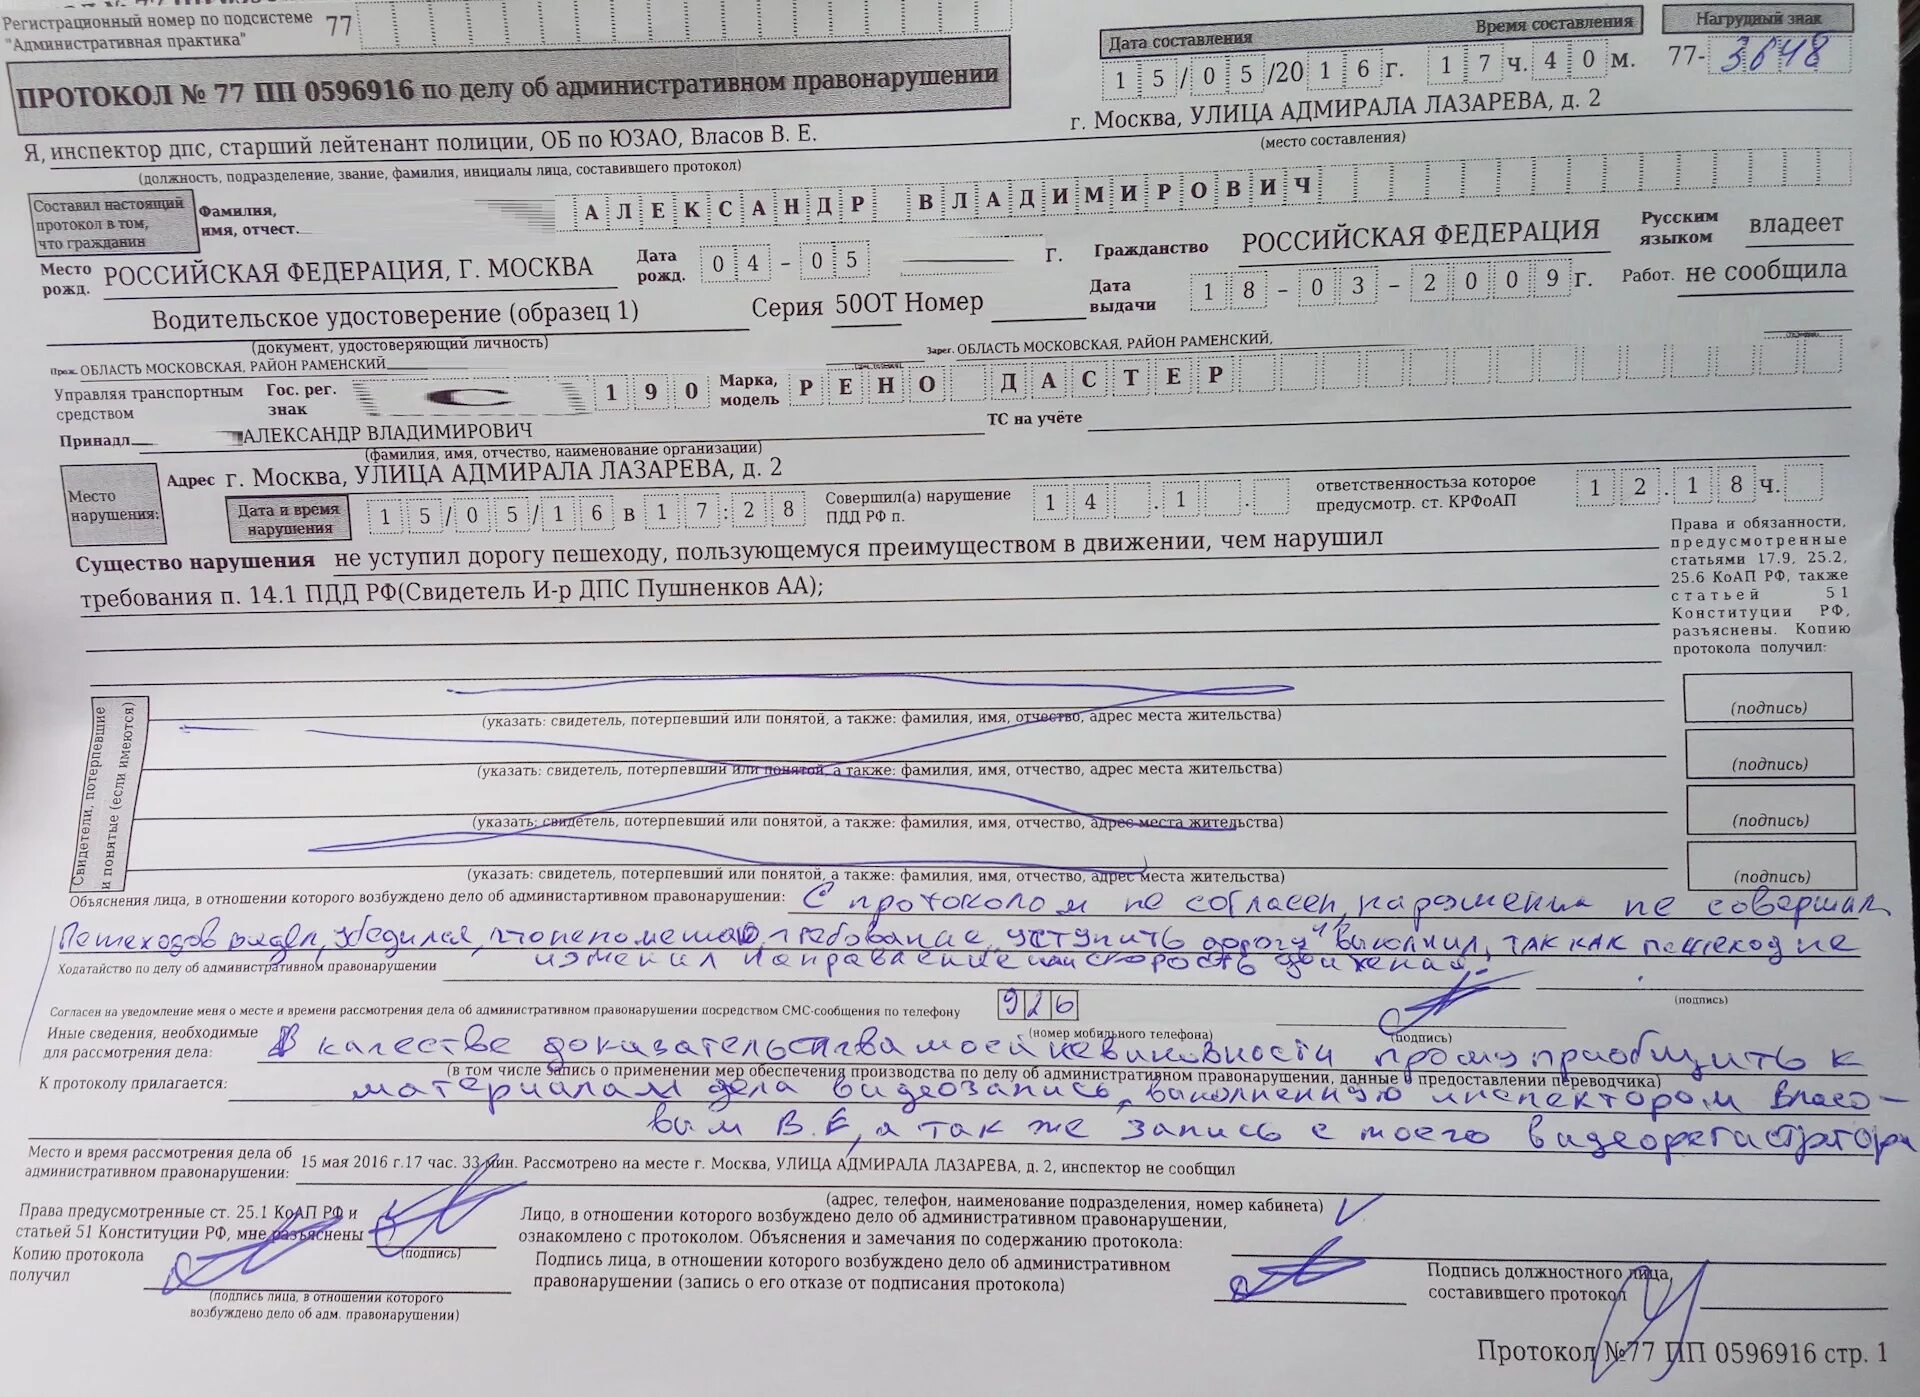 Регистрационный номер по подсистеме "Административная практика" 77
Дата составления Время составления Нагрудный знак
15/05/2016г. 17 ч. 40 м. 77-3648
ПРОТОКОЛ № 77 ПП 0596916 по делу об административном правонарушении
г. Москва, УЛИЦА АДМИРАЛА ЛАЗАРЕВА, д. 2
(место составления)
Я, инспектор дпс, старший лейтенант полиции, ОБ по ЮЗАО, Власов В. Е.
(должность, подразделение, звание, фамилия, инициалы лица, составившего протокол)
Составил настоящий протокол в том, что гражданин
Фамилия, имя, отчест. АЛЕКСАНДР ВЛАДИМИРОВИЧ
Место рожд. РОССИЙСКАЯ ФЕДЕРАЦИЯ, Г. МОСКВА Дата рожд. 04-05 г. Гражданство РОССИЙСКАЯ ФЕДЕРАЦИЯ Русским языком владеет
Водительское удостоверение (образец 1) Серия 50ОТ Номер Дата выдачи 18-03-2009г. Работ. не сообщила
(документ, удостоверяющий личность)
Прож. ОБЛАСТЬ МОСКОВСКАЯ, РАЙОН РАМЕНСКИЙ Зарег. ОБЛАСТЬ МОСКОВСКАЯ, РАЙОН РАМЕНСКИЙ,
Управляя транспортным средством Гос. рег. знак С 190 Марка, модель РЕНО ДАСТЕР
Принадл. АЛЕКСАНДР ВЛАДИМИРОВИЧ ТС на учёте
(фамилия, имя, отчество, наименование организации)
Место нарушения: Адрес г. Москва, УЛИЦА АДМИРАЛА ЛАЗАРЕВА, д. 2
Дата и время нарушения 15/05/16 в 17:28 Совершил(а) нарушение ПДД РФ п. 14.1. ответственностьза которое предусмотр. ст. КРФоАП 12.18ч.
Существо нарушения не уступил дорогу пешеходу, пользующемуся преимуществом в движении, чем нарушил
требования п. 14.1 ПДД РФ(Свидетель И-р ДПС Пушненков АА);
Права и обязанности,
предусмотренные
статьями 17.9, 25.2,
25.6 КоАП РФ, также
статьей 51
Конституции РФ,
разъяснены. Копию
протокола получил:
Свидетели, потерпевшие и понятые (если имеются)
(указать: свидетель, потерпевший или понятой, а также: фамилия, имя, отчество, адрес места жительства) (подпись)
(указать: свидетель, потерпевший или понятой, а также: фамилия, имя, отчество, адрес места жительства) (подпись)
(указать: свидетель, потерпевший или понятой, а также: фамилия, имя, отчество, адрес места жительства) (подпись)
(указать: свидетель, потерпевший или понятой, а также: фамилия, имя, отчество, адрес места жительства) (подпись)
Объяснения лица, в отношении которого возбуждено дело об администартивном правонарушении: С протоколом не согласен, нарушения не совершал
Пешеходов видел, убедился, что не помешаю, требование "уступить дорогу" выполнил, так как пешеход не
изменил направление или скорость движения.
Ходатайство по делу об административном правонарушении
(подпись)
Согласен на уведомление меня о месте и времени рассмотрения дела об административном правонарушении посредством СМС-сообщения по телефону 926
(номер мобильного телефона) (подпись)
Иные сведения, необходимые для рассмотрения дела: В качестве доказательства моей невиновности прошу приобщить к
(в том числе запись о применении мер обеспечения производства по делу об административном правонарушении, данные о предоставлении переводчика)
К протоколу прилагается: материалам дела видеозапись, выполненную инспектором Власо-
вым В.Е, а так же запись с моего видеорегистратора
Место и время рассмотрения дела об административном правонарушении: 15 мая 2016 г.17 час. 33 мин. Рассмотрено на месте г. Москва, УЛИЦА АДМИРАЛА ЛАЗАРЕВА, д. 2, инспектор не сообщил
(адрес, телефон, наименование подразделения, номер кабинета)
Права предусмотренные ст. 25.1 КоАП РФ и
статьей 51 Конституции РФ, мне разъяснены
(подпись)
Копию протокола получил
(подпись лица, в отношении которого
возбуждено дело об адм. правонарушении)
Лицо, в отношении которого возбуждено дело об административном правонарушении,
ознакомлено с протоколом. Объяснения и замечания по содержанию протокола:
Подпись лица, в отношении которого возбуждено дело об административном
правонарушении (запись о его отказе от подписания протокола)
Подпись должностного лица,
составившего протокол
Протокол №77 ПП 0596916 стр. 1